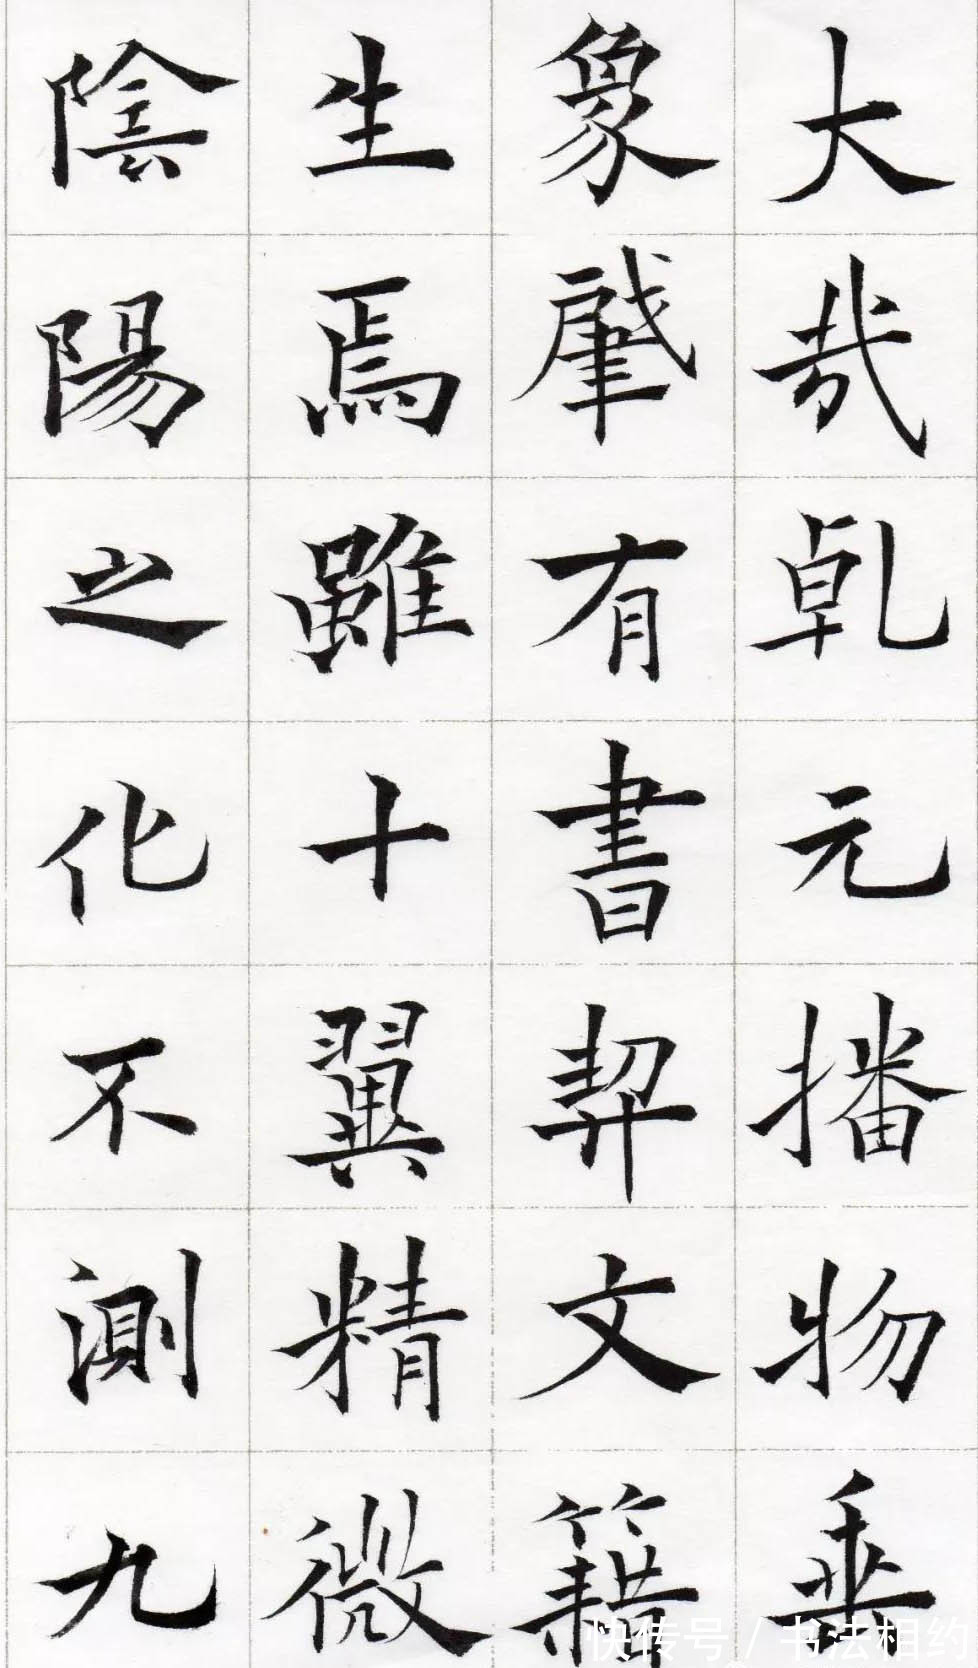 大哉乹元播物垂
象肈有書契文籍
生焉雖十翼精微
陰陽之化不測九
快传号/书法相约